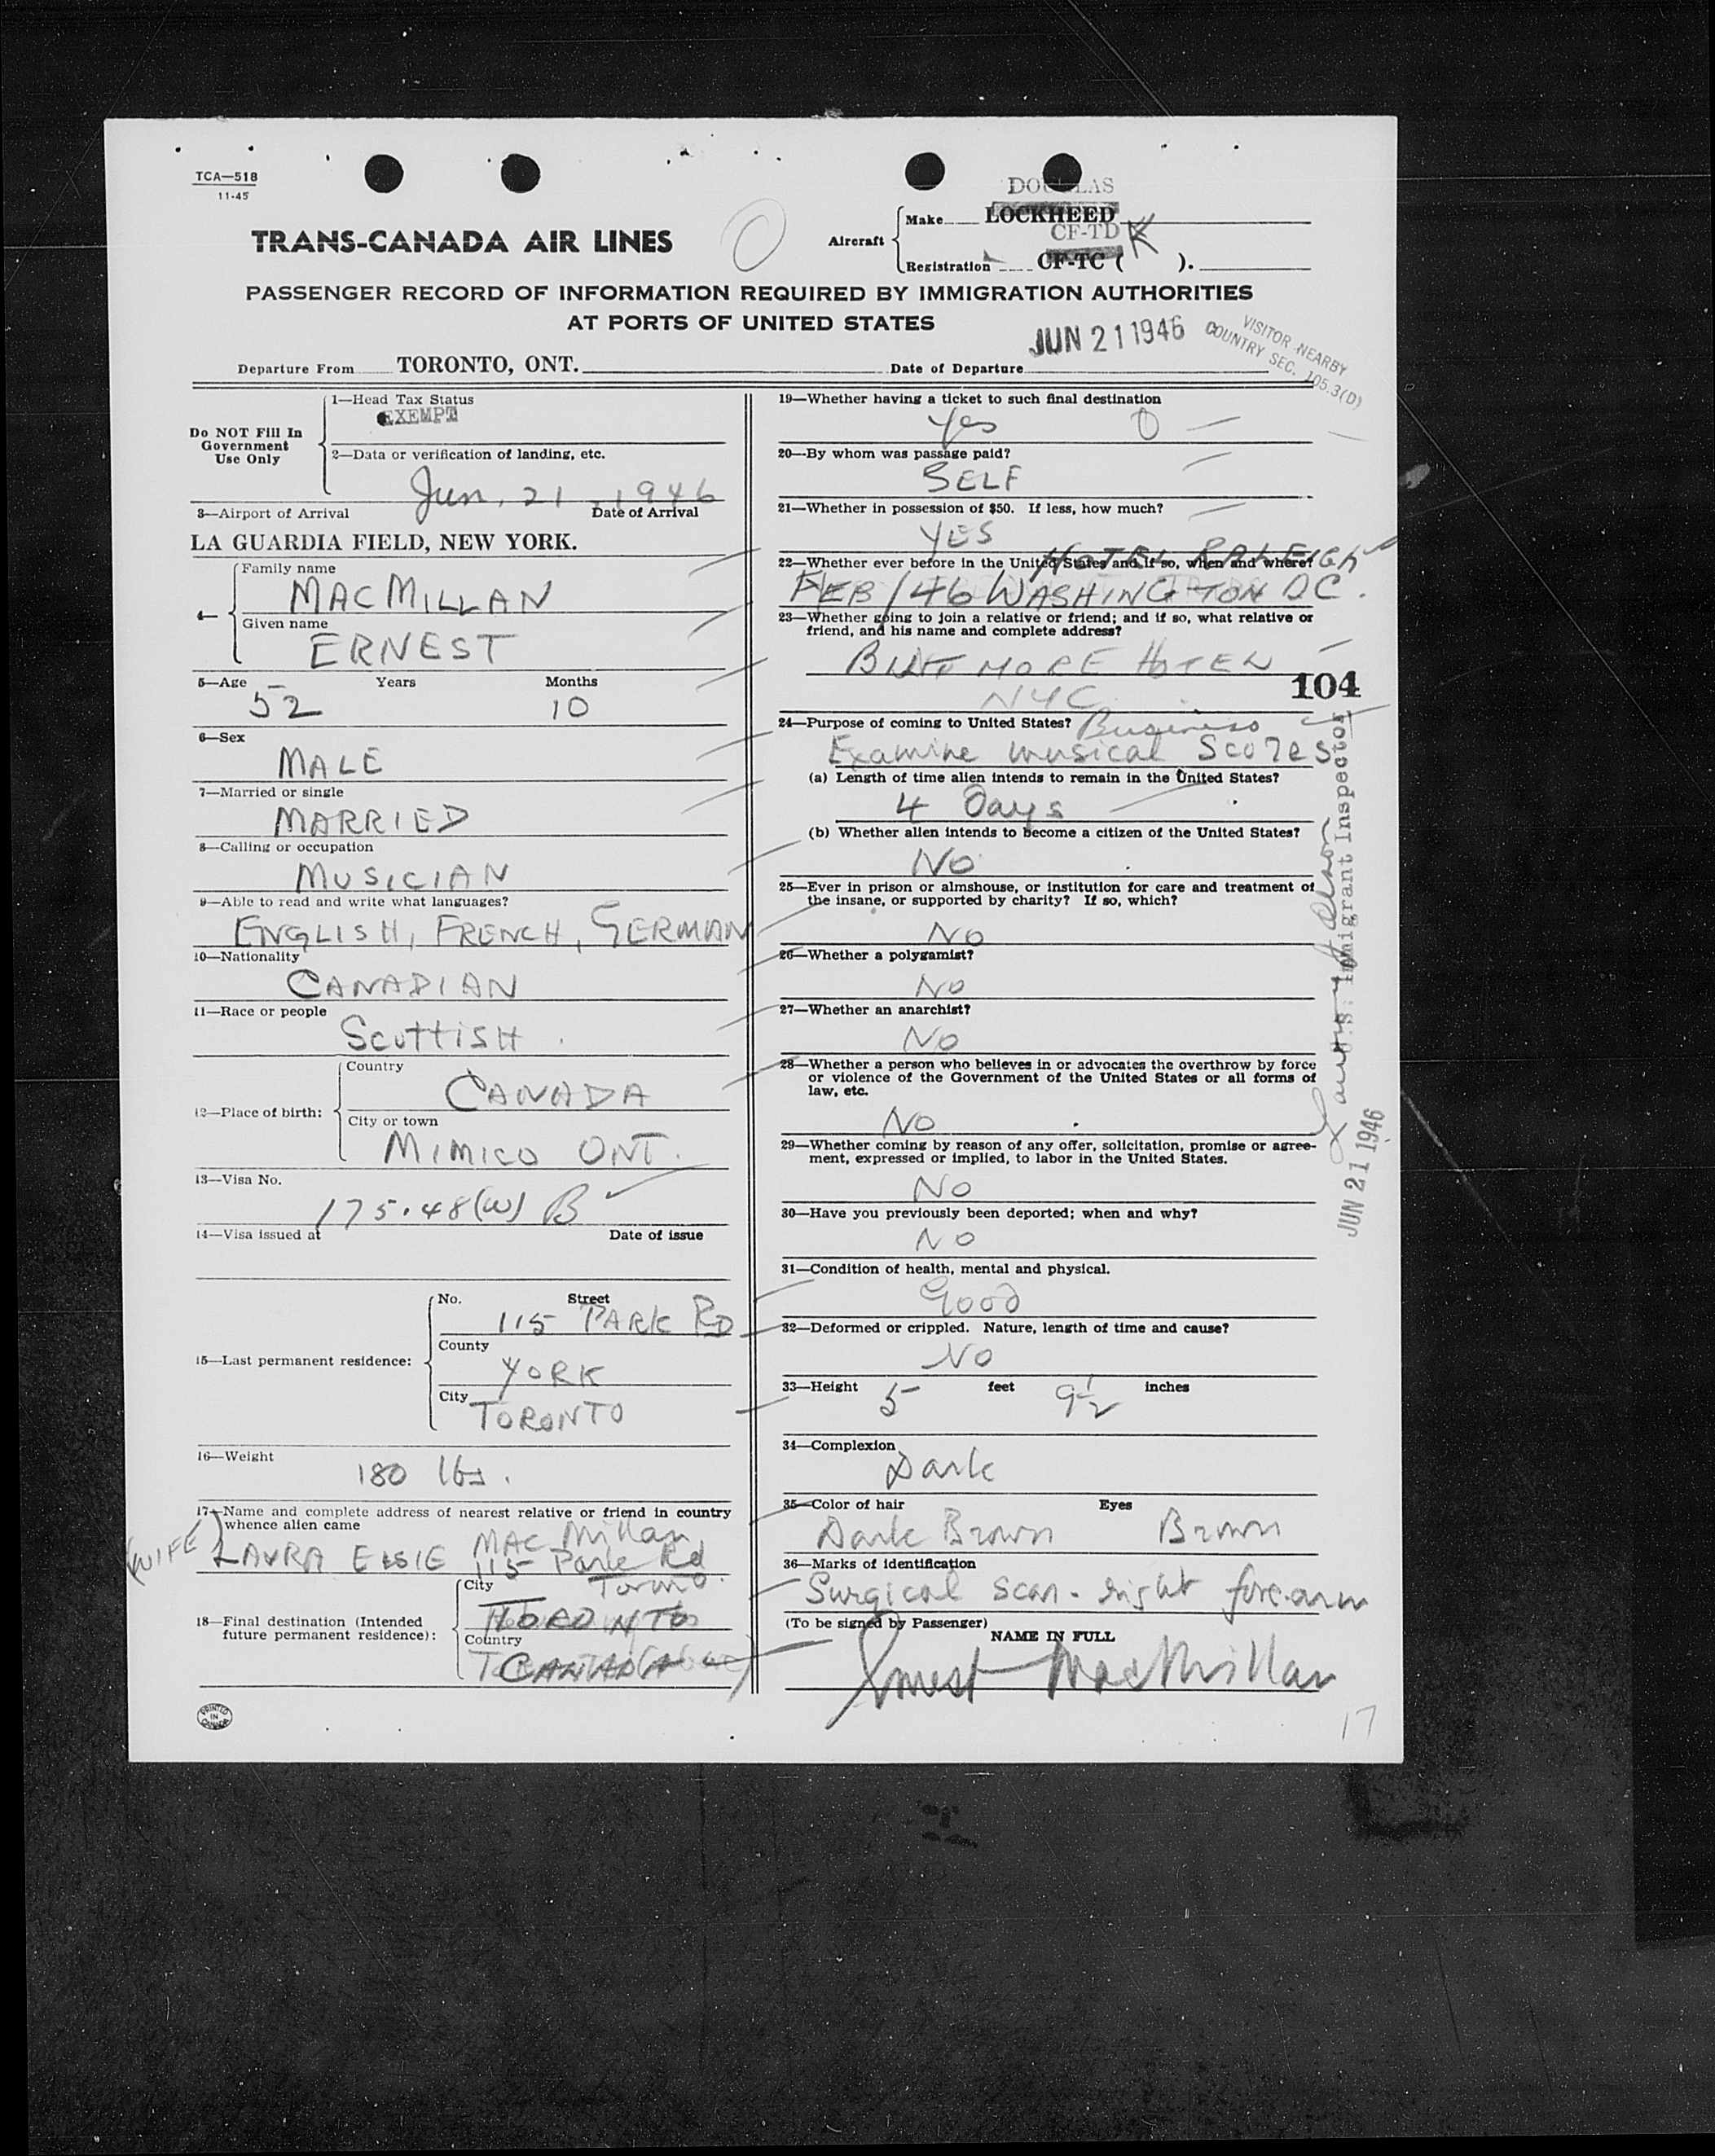 TCA—518
11-45
TRANS-CANADA AIR LINES
Aircraft
DOUGLAS
Make LOCKHEED
CF-TD K
Registration CF-TC ( ).
PASSENGER RECORD OF INFORMATION REQUIRED BY IMMIGRATION AUTHORITIES
AT PORTS OF UNITED STATES
JUN 21 1946
VISITOR NEARBY
COUNTRY SEC. 105.3(D)
Departure From TORONTO, ONT. Date of Departure
Do NOT Fill In
Government
Use Only
1—Head Tax Status
EXEMPT
2—Data or verification of landing, etc.
Jun, 21, 1946
3—Airport of Arrival Date of Arrival
LA GUARDIA FIELD, NEW YORK.
4—
Family name
MACMILLAN
Given name
ERNEST
5—Age Years Months
52 10
6—Sex
MALE
7—Married or single
MARRIED
8—Calling or occupation
MUSICIAN
9—Able to read and write what languages?
ENGLISH, FRENCH, GERMAN
10—Nationality
CANADIAN
11—Race or people
SCOTTISH
12—Place of birth:
Country
CANADA
City or town
MIMICO ONT.
13—Visa No.
175.48(W) B
14—Visa issued at Date of issue
15—Last permanent residence:
No. Street
115 PARK RD
County
YORK
City
TORONTO
16—Weight
180 lbs.
17—Name and complete address of nearest relative or friend in country
whence alien came
(WIFE) LAURA ELSIE MAC Millan
115 Park Rd
Toronto.
18—Final destination (Intended
future permanent residence):
City
TORONTO
Country
CANADA
PRINTED
IN
CANADA
19—Whether having a ticket to such final destination
Yes 0
20—By whom was passage paid?
SELF
21—Whether in possession of $50. If less, how much?
YES
22—Whether ever before in the United States and if so, when and where?
HOTEL RALEIGH
FEB/46 WASHINGTON DC.
23—Whether going to join a relative or friend; and if so, what relative or
friend, and his name and complete address?
BILTMORE HOTEL
NYC
104
24—Purpose of coming to United States? Business
Examine musical Scores
(a) Length of time alien intends to remain in the United States?
4 Days
(b) Whether alien intends to become a citizen of the United States?
NO
25—Ever in prison or almshouse, or institution for care and treatment of
the insane, or supported by charity? If so, which?
NO
26—Whether a polygamist?
NO
27—Whether an anarchist?
NO
28—Whether a person who believes in or advocates the overthrow by force
or violence of the Government of the United States or all forms of
law, etc.
NO
29—Whether coming by reason of any offer, solicitation, promise or agree-
ment, expressed or implied, to labor in the United States.
NO
30—Have you previously been deported; when and why?
NO
31—Condition of health, mental and physical.
Good
32—Deformed or crippled. Nature, length of time and cause?
NO
33—Height 5 feet 9½ inches
34—Complexion
Dark
35—Color of hair Eyes
Dark Brown Brown
36—Marks of identification
Surgical scar - right forearm
(To be signed by Passenger)
NAME IN FULL
Ernest MacMillan
U.S. Immigrant Inspector
JUN 21 1946
17